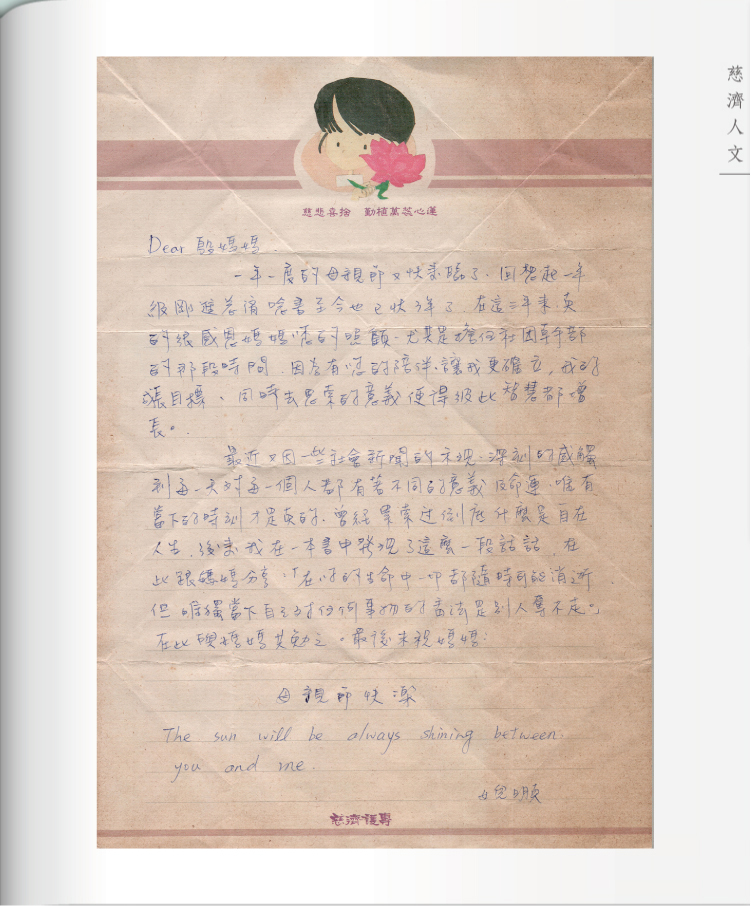 慈濟人文
慈悲喜捨 勤植萬蕊心蓮
Dear 殷媽媽
一年一度的母親節又快來臨了。回想起一年
級剛進慈濟唸書至今也已快3年了。在這三年來,真
的很感恩媽媽您的照顧,尤其是擔任社團幹部
的那段時間,因為有您的陪伴,讓我更確立,我的
目標、同時去思索的意義使得彼此智慧都增
長。
最近又因一些社會新聞的,深刻的感觸
到每一天對每一個人都有著不同的意義及命運,唯有
當下的時刻才是真的。曾經思索過到底什麼是自在
人生,後來我在一本書中發現了這麼一段話,在
此跟媽媽分享:「在你的生命中一切都隨時可能消逝
但唯獨當下自己對任何事物的是別人奪不走」。
在此與媽媽共勉之。最後末祝媽媽:
母親節快樂
The sun will be always shining between
you and me.
女兒
慈濟護專